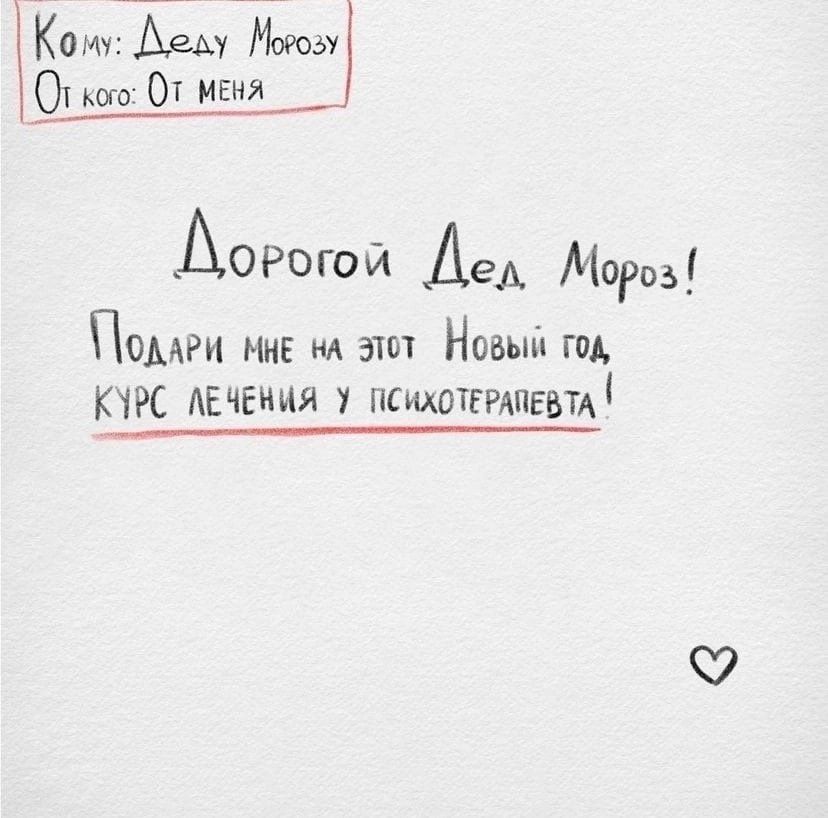 Кому: Деду Морозу
От кого: От меня
Дорогой Дед Мороз!
Подари мне на этот Новый год
курс лечения у психотерапевта!